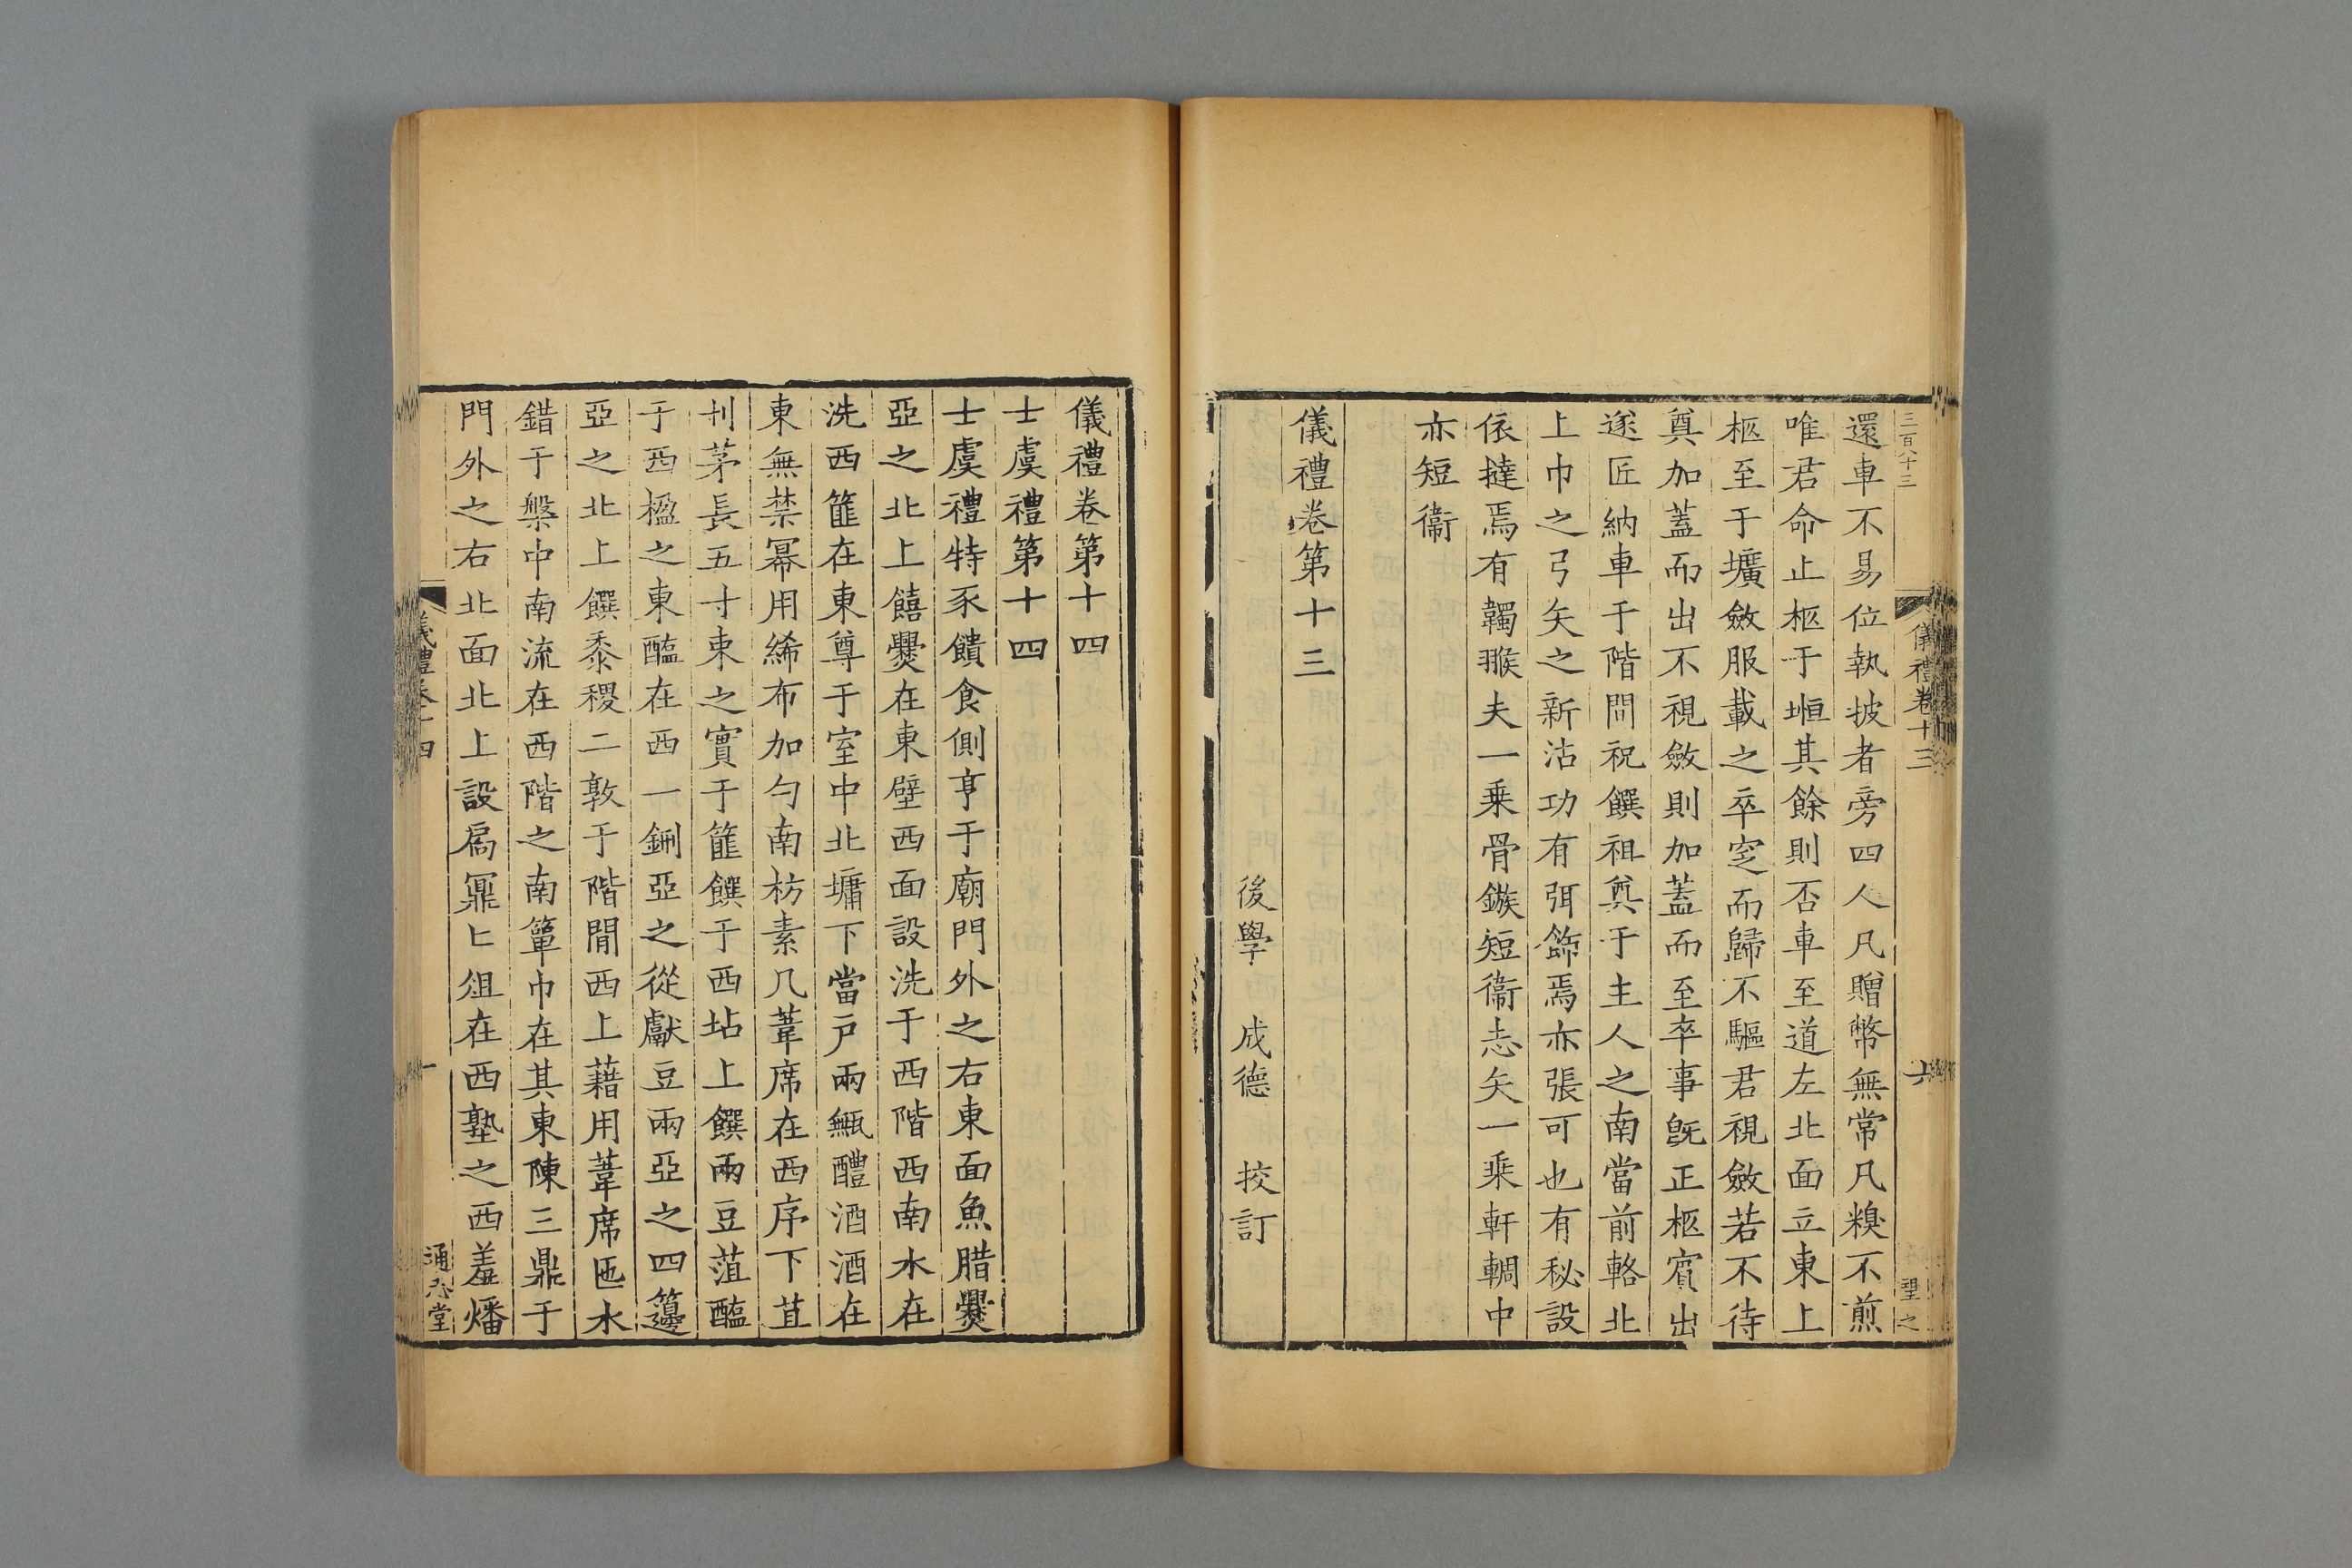 三百八十三
儀禮卷十三
六
聖之
還車不易位執披者旁四人凡贈幣無常凡糗不煎
唯君命止柩于堩其餘則否車至道左北面立東上
柩至于壙斂服載之卒窆而歸不驅君視斂若不待
奠加蓋而出不視斂則加蓋而至卒事既正柩賓出
遂匠納車于階間祝饌祖奠于主人之南當前輅北
上巾之弓矢之新沽功有弭飾焉亦張可也有柲設
依撻焉有韣猴矢一乗骨鏃短衞志矢一乗軒輖中
亦短衞
儀禮卷第十三
後學 成德 挍訂
儀禮卷第十四
士虞禮第十四
士虞禮特豕饋食側亨于廟門外之右東面魚腊爨
亞之北上饎爨在東壁西面設洗于西階西南水在
洗西篚在東尊于室中北墉下當戶兩甒醴酒酒在
東無禁冪用絺布加勺南枋素几葦席在西序下苴
刌茅長五寸束之實于篚饌于西坫上饌兩豆菹醢
于西楹之東醢在西一鉶亞之從獻豆兩亞之四籩
亞之北上饌黍稷二敦于階間西上藉用葦席匜水
錯于槃中南流在西階之南簞巾在其東陳三鼎于
門外之右北面北上設扃鼏匕俎在西塾之西羞燔
儀禮卷十四
一
通志堂